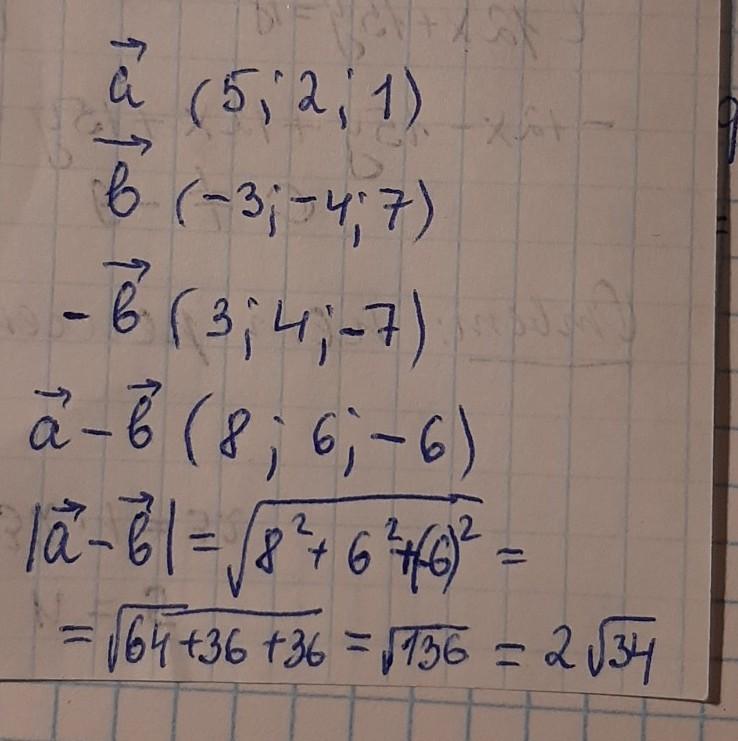 a⃗ (5; 2; 1)
b⃗ (-3; -4; 7)
-b⃗ (3; 4; -7)
a⃗ - b⃗ (8; 6; -6)
|a⃗ - b⃗| = √(8² + 6² + (-6)²) =
= √(64 + 36 + 36) = √136 = 2√34